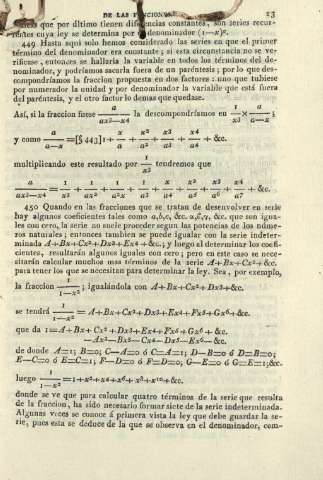 DE LAS FUNCIONES 23
que por último tienen diferencias constantes, son series recur-
rentes cuya ley se determina por el denominador (1—x)ⁿ.
449 Hasta aquí solo hemos considerado las series en que el primer
término del denominador era constante; si esta circunstancia no se ve-
rificase, entonces se hallaria la variable en todos los términos del de-
nominador, y podríamos sacarla fuera de un paréntesis; por lo que des-
compondríamos la fraccion propuesta en dos factores: uno que tubiese
por numerador la unidad y por denominador la variable que está fuera
del paréntesis, y el otro factor lo demas que quedase.
Así, si la fraccion fuese a/(ax³—x⁴) la descompondríamos en 1/x³ × a/(a—x);
y como a/(a—x) =[§ 443] 1 + x/a + x²/a² + x³/a³ + x⁴/a⁴ + &c.
multiplicando este resultado por 1/x³ tendremos que
a/(ax³—x⁴) = 1/x³ + 1/ax² + 1/a²x + 1/a³ + x/a⁴ + x²/a⁵ + x³/a⁶ + x⁴/a⁷ + &c.
450 Quando en las fracciones que se tratan de desenvolver en serie
hay algunos coeficientes tales como a,b,c, &c. α,ϐ,γ, &c. que son igua-
les con cero, la serie no suele proceder segun las potencias de los núme-
ros naturales; entonces tambien se puede igualar con la serie indeter-
minada A+Bx+Cx²+Dx³+Ex⁴+&c.; y luego al determinar los coefi-
cientes, resultarán algunos iguales con cero; pero en este caso se nece-
sitarán calcular muchos mas términos de la serie A+Bx+Cx²+&c.
para tener los que se necesitan para determinar la ley. Sea, por exemplo,
la fraccion 1/(1—x²); igualándola con A+Bx+Cx²+Dx³+&c.
se tendrá 1/(1—x²) = A+Bx+Cx²+Dx³+Ex⁴+Fx⁵+Gx⁶+&c.
que da 1=A+Bx+Cx²+Dx³+Ex⁴+Fx⁵+Gx⁶+ &c.
—Ax²—Bx³— Cx⁴—Dx⁵—Ex⁶— &c.
de donde A=1; B=0; C—A=0 ó C=A=1; D—B=0 ó D=B=0;
E—C=0 ó E=C=1; F—D=0 ó F=D=0; G—E=0 ó G=E=1;&c.
luego 1/(1—x²) =1+x²+x⁴+x⁶+ x⁸+x¹⁰+&c.
donde se ve que para calcular quatro términos de la serie que resulta
de la fraccion, ha sido necesario formar siete de la serie indeterminada.
Algunas veces se conoce á primera vista la ley que debe guardar la se-
rie, pues esta se deduce de la que se observa en el denominador, com-